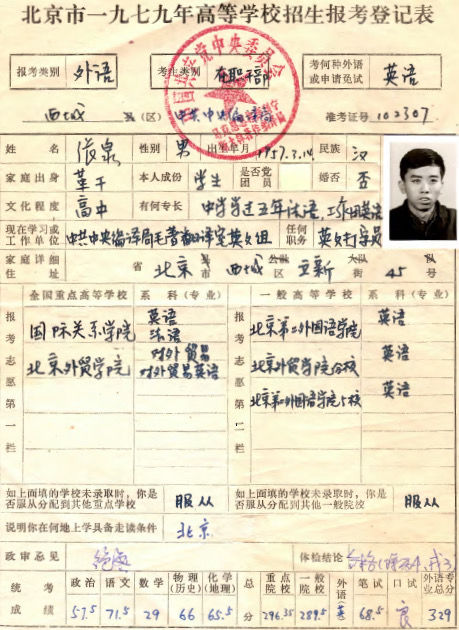 北京市一九七九年高等学校招生报考登记表
报考类别 外语 考生类别 在职干部 考何种外语或申请免试 英语
西城 县(区) 中共中央编译局 准考证号 102307
姓名 俊泉 性别 男 出生年月 1957.3.14 民族 汉
家庭出身 革干 本人成份 学生 是否党团员 婚否 否
文化程度 高中 有何专长 中学学过五年法语,工作用英语
现在学习或工作单位 中共中央编译局毛著翻译室英文组 任何职务 英文打字员
家庭详细住址 省 北京 市 西城 区 立新 街 45 号
报考志愿第一栏 全国重点高等学校 系科(专业) 报考志愿第二栏 一般高等学校 系科(专业)
国际关系学院 英语 法语 北京第二外国语学院 英语
北京外贸学院 对外贸易 对外贸易英语 北京外贸学院分校 英语
北京第二外国语学院分校 英语
如上面填的学校未录取时,你是否服从分配到其他重点学校 服从 如上面填的学校未录取时,你是否服从分配到其他一般院校 服从
说明你在何地上学具备走读条件 北京
政审意见 体检结论
统考成绩 政治 语文 数学 物理(历史) 化学(地理) 总分 重点院校 一般院校 外语 笔试 口试 外语专业总分
57.5 71.5 29 66 65.5 296.35 289.5 英 68.5 良 329